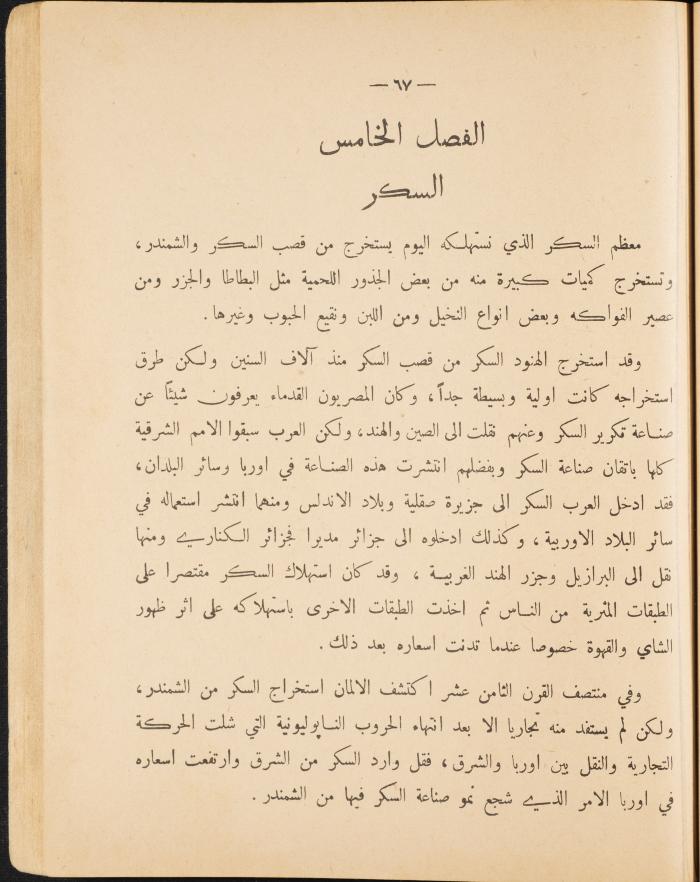 — ٦٧ —
الفصل الخامس
السكر
معظم السكر الذي نستهلكه اليوم يستخرج من قصب السكر والشمندر ،
وتستخرج كميات كبيرة منه من بعض الجذور اللحمية مثل البطاطا والجزر ومن
عصير الفواكه وبعض انواع النخيل ومن اللبن ونقيع الحبوب وغيرها .
وقد استخرج الهنود السكر من قصب السكر منذ آلاف السنين ولكن طرق
استخراجه كانت اولية وبسيطة جداً ، وكان المصريون القدماء يعرفون شيئاً عن
صناعة تكرير السكر وعنهم نقلت الى الصين والهند ، ولكن العرب سبقوا الامم الشرقية
كلها باتقان صناعة السكر وبفضلهم انتشرت هذه الصناعة في اوربا وسائر البلدان ،
فقد ادخل العرب السكر الى جزيرة صقلية وبلاد الاندلس ومنهما انتشر استعماله في
سائر البلاد الاوربية ، وكذلك ادخلوه الى جزائر مديرا فجزائر الكناري ومنها
نقل الى البرازيل وجزر الهند الغربية ، وقد كان استهلاك السكر مقتصرا على
الطبقات المثرية من الناس ثم اخذت الطبقات الاخرى باستهلاكه على اثر ظهور
الشاي والقهوة خصوصا عندما تدنت اسعاره بعد ذلك .
وفي منتصف القرن الثامن عشر اكتشف الالمان استخراج السكر من الشمندر ،
ولكن لم يستفد منه تجاريا الا بعد انتهاء الحروب الناپوليونية التي شلت الحركة
التجارية والنقل بين اوربا والشرق ، فقل وارد السكر من الشرق وارتفعت اسعاره
في اوربا الامر الذي شجع نمو صناعة السكر فيها من الشمندر .